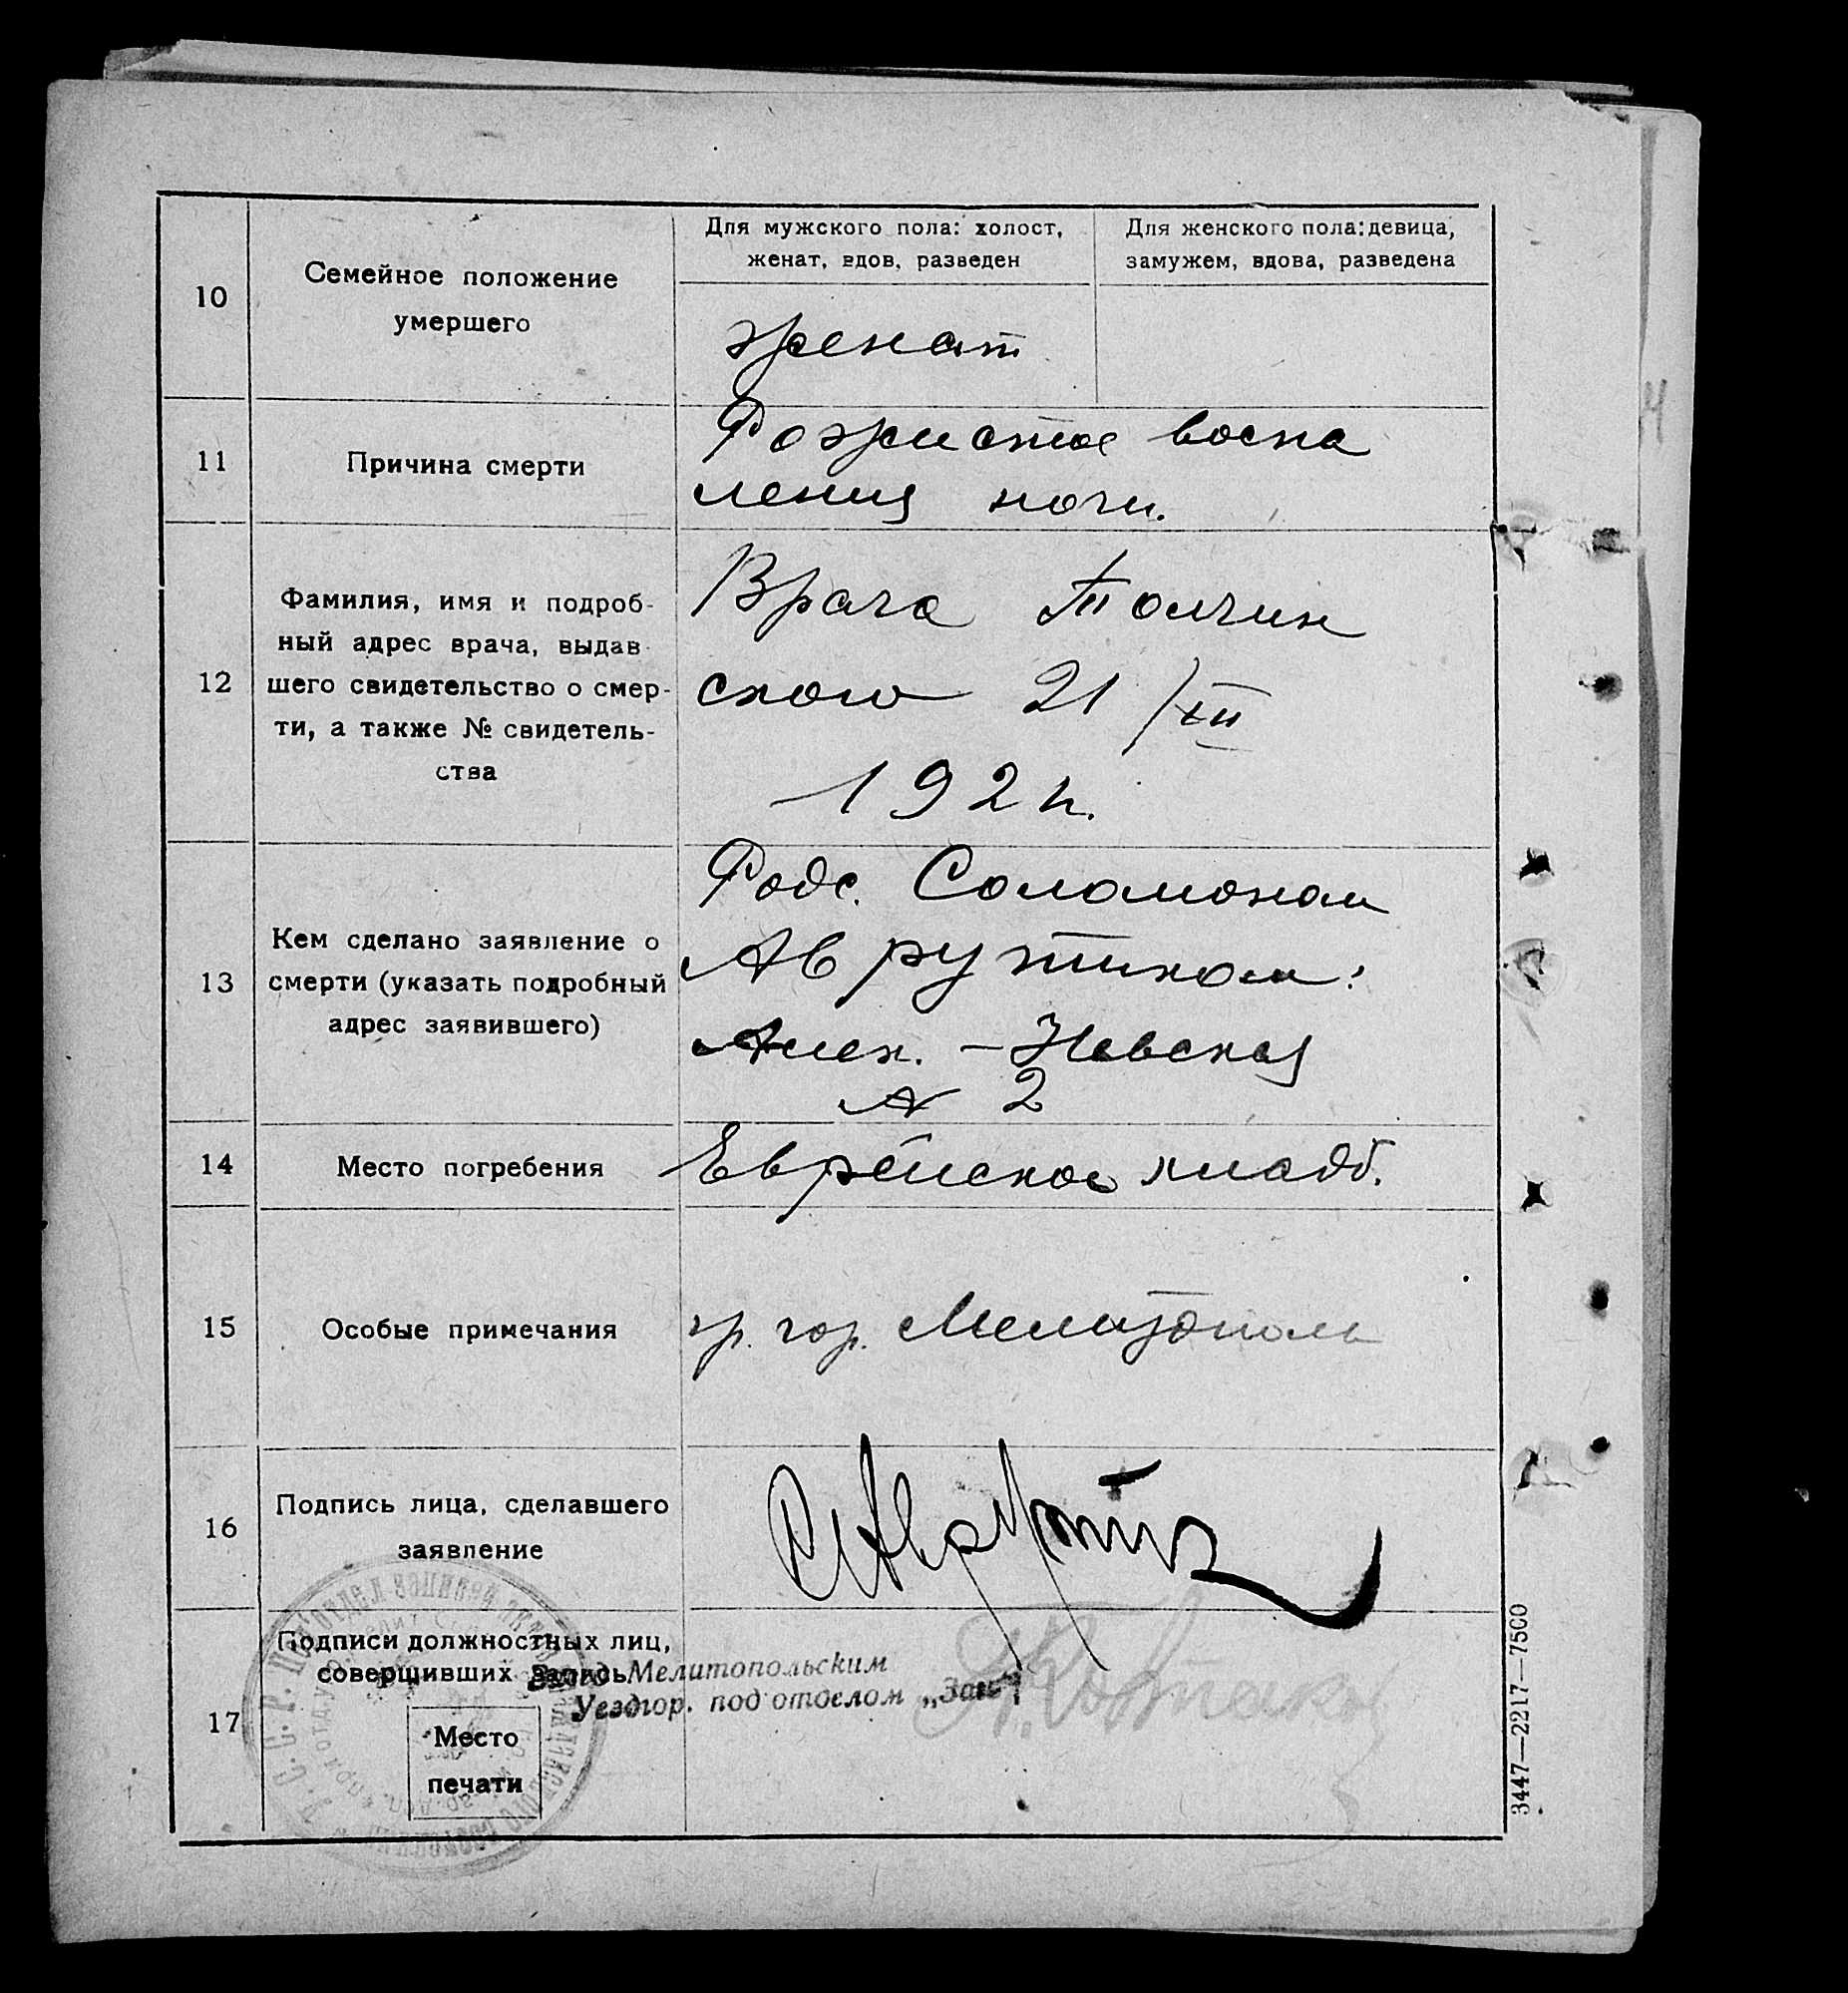 10
Семейное положение
умершего
Для мужского пола: холост,
женат, вдов, разведен
Для женского пола: девица,
замужем, вдова, разведена
женат
11
Причина смерти
Рожистое воспа
ления ноги.
12
Фамилия, имя и подроб-
ный адрес врача, выдав
шего свидетельство о смер-
ти, а также № свидетель-
ства
Врача Толчин
ского 21/XII
192 г.
13
Кем сделано заявление о
смерти (указать подробный
адрес заявившего)
Соломоном
Аврутином:
Алек. - Невская
№ 2
14
Место погребения
Еврейское кладб.
15
Особые примечания
гр. гор. Мелитополь
16
Подпись лица, сделавшего
заявление
САврутин
17
Подписи должностных лиц,
совершивших запись
Мелитопольским
Уездгор. под'отделом „Загс"
Место
печати
3447—2217—7500